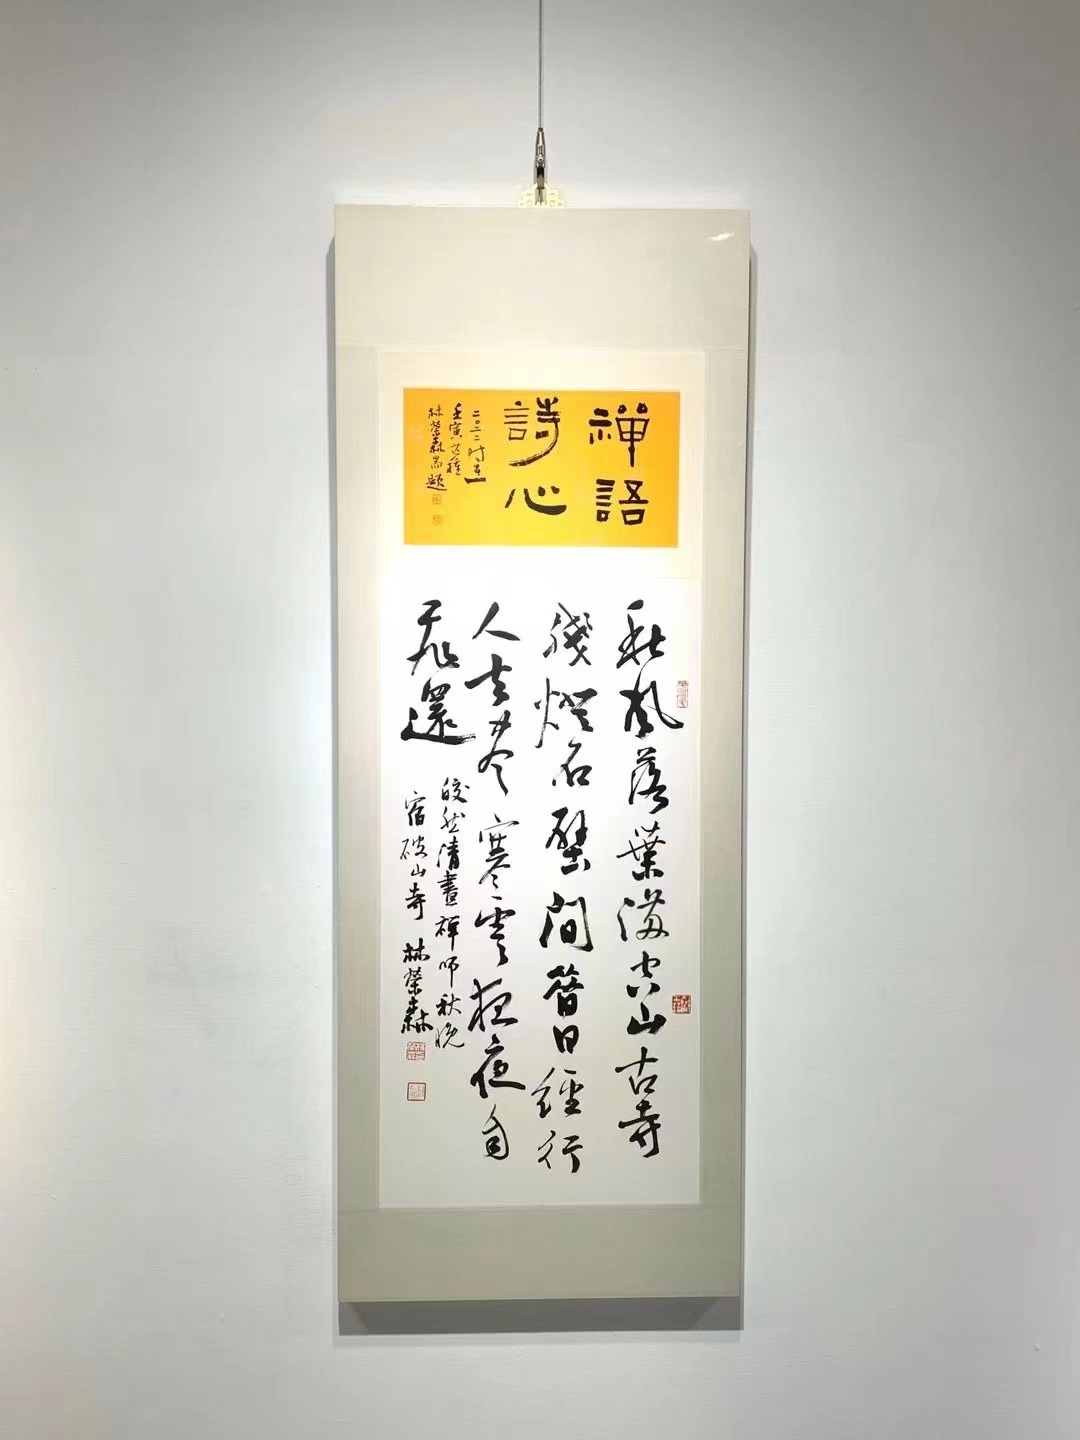 禪語
詩心
二〇二二时在
壬寅芒種
林榮森耑題
秋風落葉滿空山古寺
殘燈石壁間昔日經行
人去盡寒雲夜夜自
飛還
皎然清晝禪師秋晚
宿破山寺 林榮森